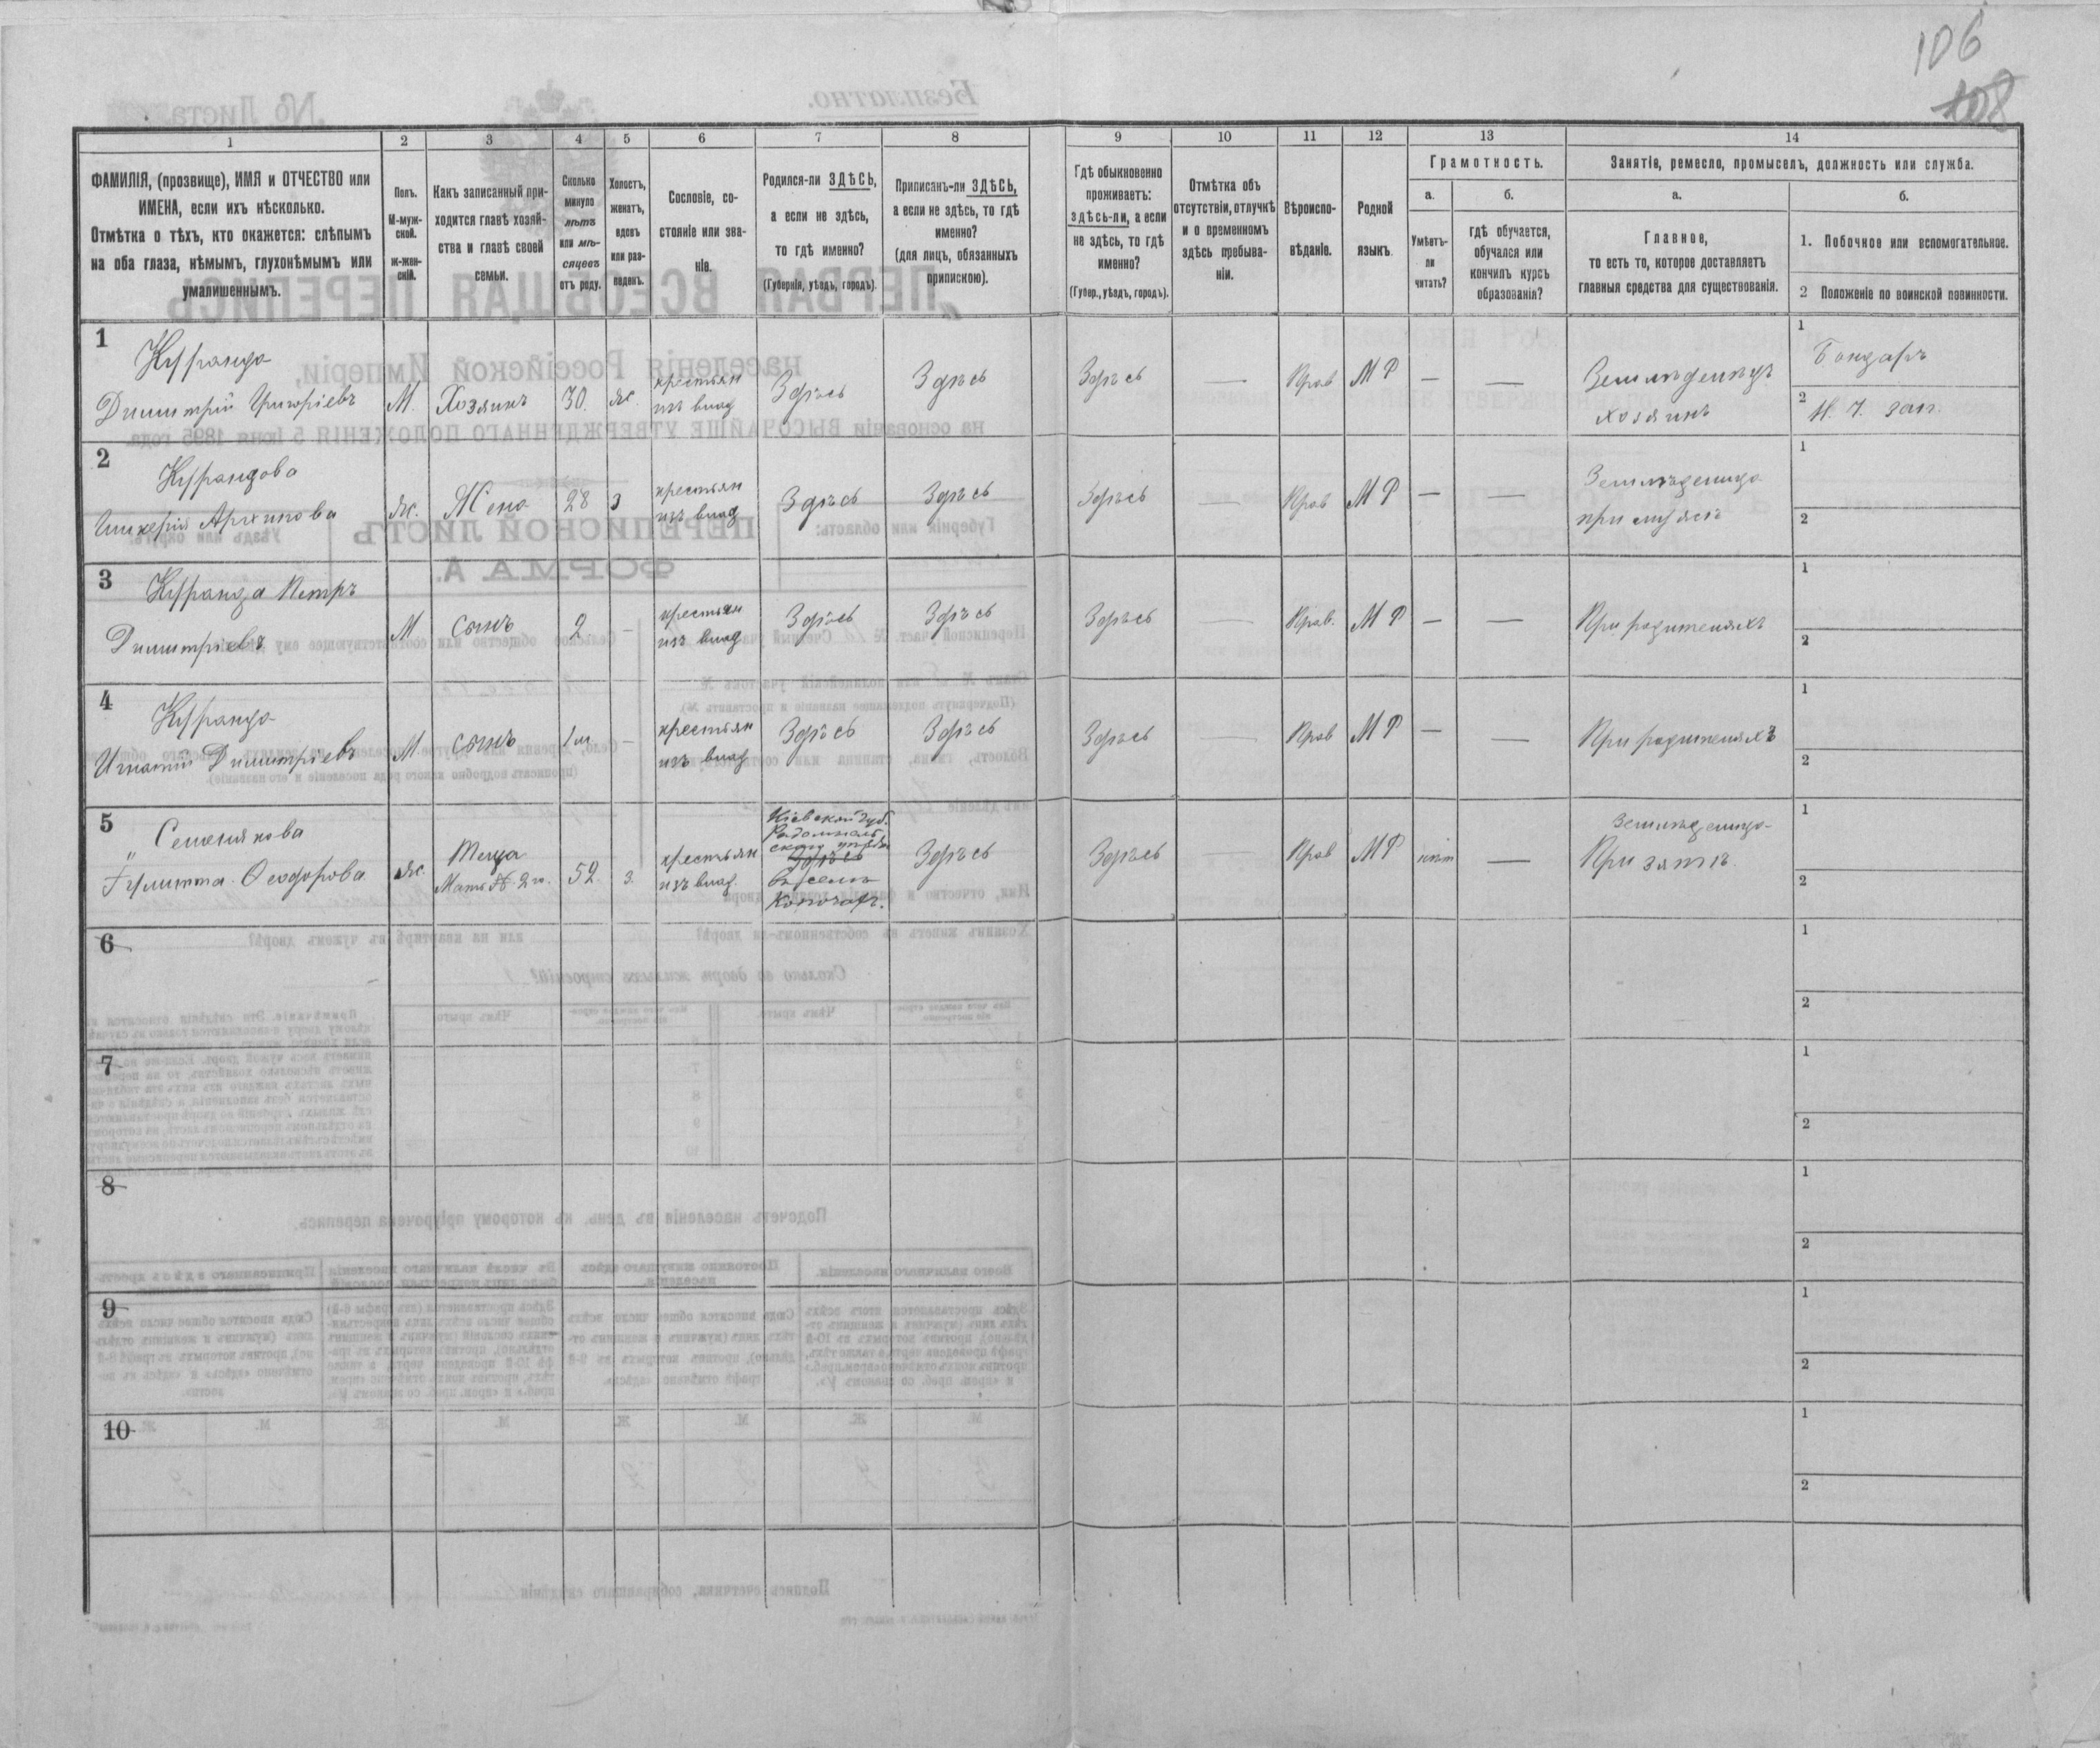 106
108
1
2
3
4
5
6
7
8
9
10
11
12
13
14
ФАМИЛІЯ, (прозвище), ИМЯ и ОТЧЕСТВО или
ИМЕНА, если ихъ нѣсколько.
Отмѣтка о тѣхъ, кто окажется: слѣпымъ
на оба глаза, нѣмымъ, глухонѣмымъ или
умалишеннымъ.
Полъ.
М-муж-
ской.
ж-жен-
скій.
Какъ записанный при-
ходится главѣ хозяй-
ства и главѣ своей
семьи.
Сколько
минуло
лѣтъ
или мѣ-
сяцевъ
отъ роду.
Холостъ,
женатъ,
вдовъ
или раз-
веденъ.
Сословіе, со-
стояніе или зва-
ніе.
Родился-ли ЗДѢСЬ,
а если не здѣсь,
то гдѣ именно?
(Губернія, уѣздъ, городъ).
Приписанъ-ли ЗДѢСЬ,
а если не здѣсь, то гдѣ
именно?
(для лицъ, обязанныхъ
припискою).
Гдѣ обыкновенно
проживаетъ:
здѣсь-ли, а если
не здѣсь, то гдѣ
именно?
(Губер., уѣздъ, городъ).
Отмѣтка объ
отсутствіи, отлучкѣ
и о временномъ
здѣсь пребыва-
ніи.
Вѣроиспо-
вѣданіе.
Родной
языкъ.
Грамотность.
а.
Умѣетъ-
ли
читать?
б.
гдѣ обучается,
обучался или
кончилъ курсъ
образованія?
Занятіе, ремесло, промыселъ, должность или служба.
а.
Главное,
то есть то, которое доставляетъ
главныя средства для существованія.
б.
1. Побочное или вспомогательное.
2 Положеніе по воинской повинности.
1
Димитрій Григоріевъ
М.
Хозяинъ
30.
ж.
крестьян
изъ влад
Здѣсь
Здѣсь
Здѣсь
—
Прав
М Р
—
—
Земледѣлецъ
хозяинъ
1
Бондарь
2
2
Архипова
ж.
Жена
28
з
крестьян
изъ влад
Здѣсь
Здѣсь
Здѣсь
—
Прав
М Р
—
—
при мужѣ
1
2
3
Петръ
Димитріевъ
М
сынъ
2
—
крестьян
изъ влад
Здѣсь
Здѣсь
Здѣсь
—
Прав.
М Р
—
—
При родителяхъ
1
2
4
Игнатій Димитріевъ
М
сынъ
1м
—
крестьян
изъ влад
Здѣсь
Здѣсь
Здѣсь
—
Прав
М Р
—
—
При родителяхъ
1
2
5
Ѳеодорова
ж.
Теща
Мать № 2го.
52.
з.
крестьян
изъ влад.
Кіевской губ.
Радомысль-
Здѣсь
Здѣсь
Здѣсь
—
Прав
М Р
нѣт
—
При зятѣ.
1
2
6
1
2
7
1
2
8
1
2
9
1
2
10
1
2